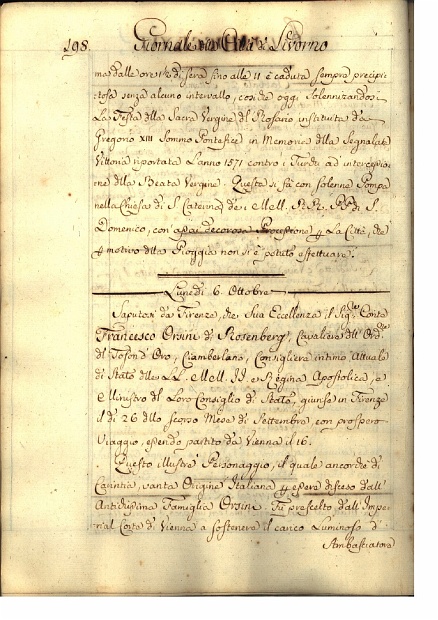 198. Giornale della Città di Livorno
ma dalle ore 1½ di sera fino alle 11 è caduta sempre precipi-
tosa senza alcuno intervallo, così che oggi Solennizandosi
La Festa dlla Sacra Vergine del Rosario instituita da
Gregorio XIII Sommo Pontefice in Memoria dlla Segnalata
Vittoria riportata L'anno 1571 contro i Turchi ad intercessio
ne dlla Beata Vergine. Questa si fà con solenne Pompa
nella Chiesa di S. Caterina de i Mell. RR. PP. di S.
Domenico, con assai decorosa Processione p La Città, che
p motivo dlla Pioggia non si è potuta effettuare.
Lunedì 6. Ottobre
Saputasi da Firenze, che Sua Eccellenza il Sigre Conte
Francesco Orsini di Rosenberg, Cavaliere dll' Ordne
dl Toson d'Oro, Ciamberlano, Consigliere intimo Attuale
di Stato dlle LL. MM. II. e Regina Apostolica, e
Ministro dl Loro Consiglio di Stato, giunse in Firenze
il dì 26 dllo scorso Mese di Settembre, con prospero
Viaggio, essendo partito da Vienna il 16.
Questo illustre Personaggio, il quale ancorche di
Carintia, vanta Origine Italiana p essere disceso dall'
Antichissima Famiglia Orsini. Fù prescelto dall' Impe-
rial Corte di Vienna a sostenere il carico Luminoso d'
Ambasciatore